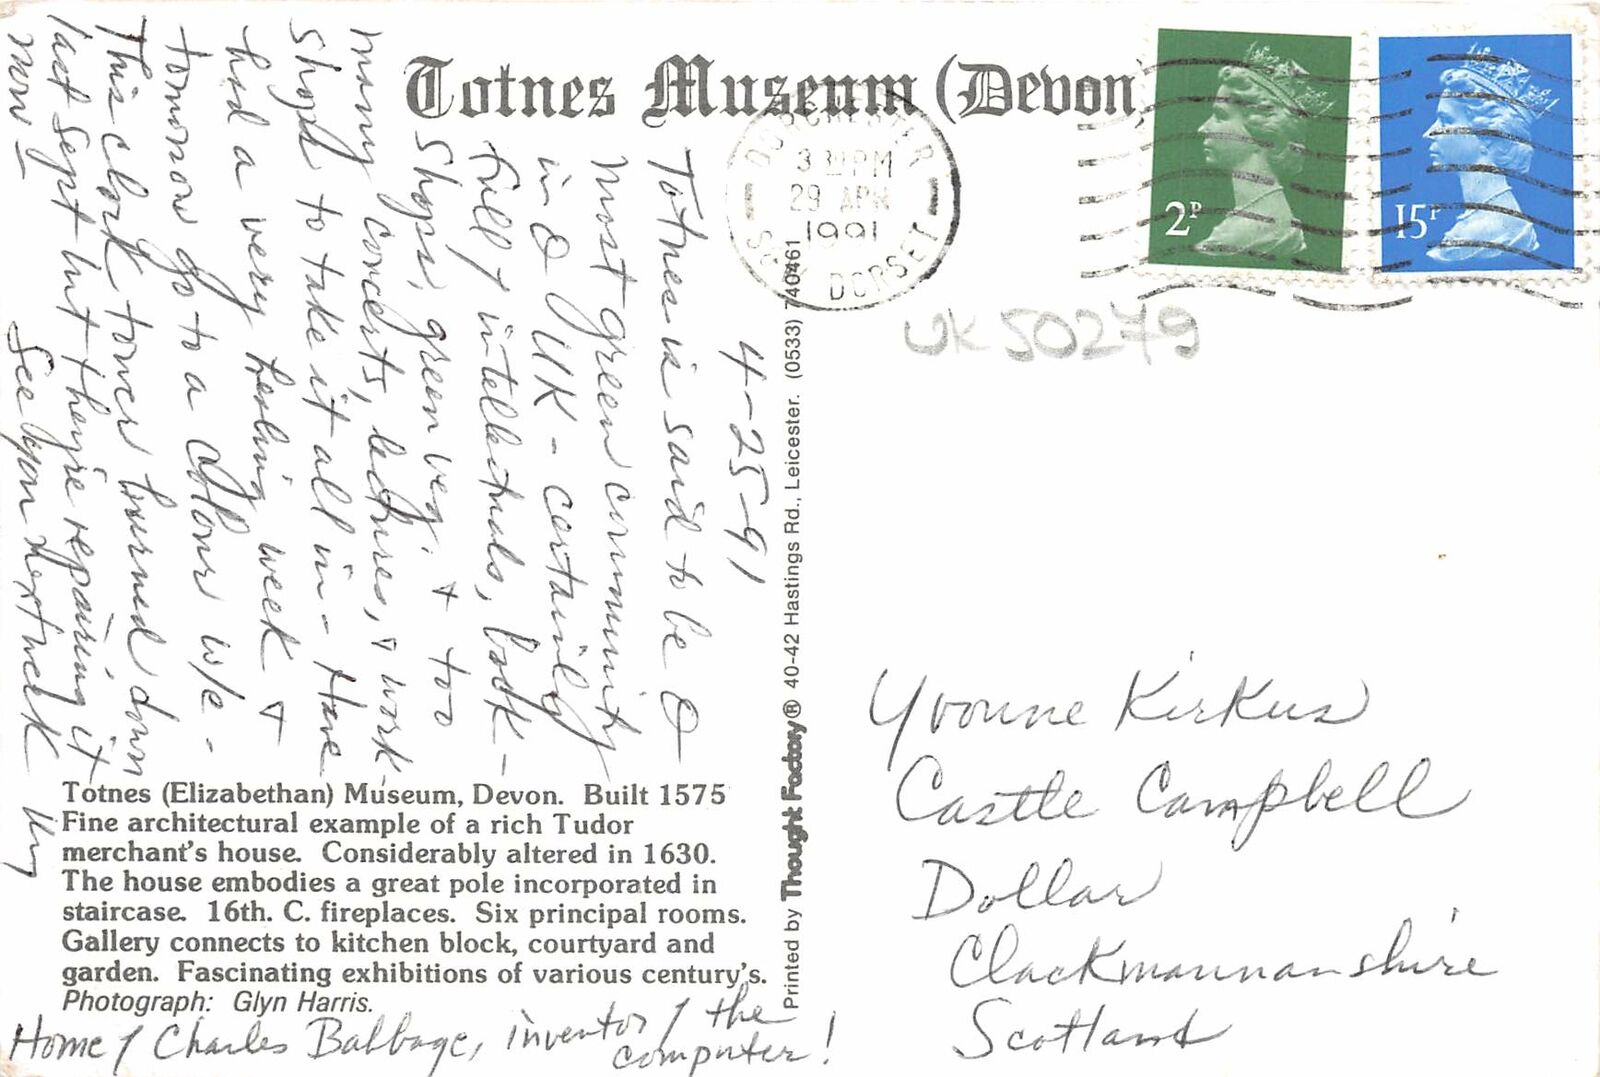 Totnes Museum (Devon)
DORCHESTER
3 PM
29 APR
1991
DORSET
2P
15P
UK50279
4-25-91
Totnes is said to be a
most green community
in a UK - certainly
full of intellectuals, book-
shops, green veg. & too
many concerts, lectures, & work-
shops to take it all in - Have
had a very loving week &
tomorrow go to a colour w/e -
This clock tower burned down
last Sept but they're repairing it
now -
See you next week
Totnes (Elizabethan) Museum, Devon. Built 1575
Fine architectural example of a rich Tudor
merchant's house. Considerably altered in 1630.
The house embodies a great pole incorporated in
staircase. 16th. C. fireplaces. Six principal rooms.
Gallery connects to kitchen block, courtyard and
garden. Fascinating exhibitions of various century's.
Photograph: Glyn Harris.
Home of Charles Babbage, inventor of the
computer!
Printed by Thought Factory® 40-42 Hastings Rd., Leicester. (0533) 740461
Yvonne Kirkus
Castle Campbell
Dollar
Clackmannanshire
Scotland